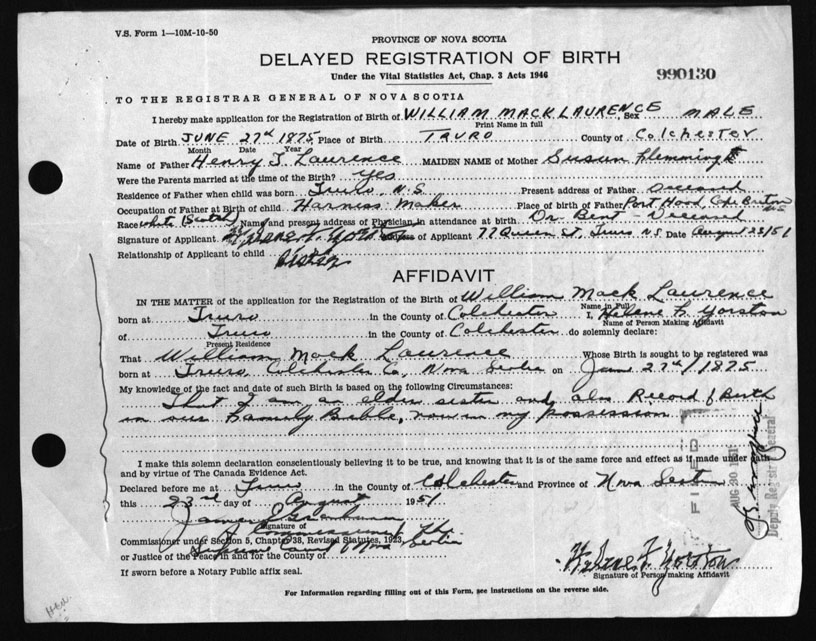 V.S. Form 1—10M-10-50
PROVINCE OF NOVA SCOTIA
DELAYED REGISTRATION OF BIRTH
Under the Vital Statistics Act, Chap. 3 Acts 1946
990130
TO THE REGISTRAR GENERAL OF NOVA SCOTIA
I hereby make application for the Registration of Birth of WILLIAM MACK LAURENCE Sex MALE
Print Name in full
Date of Birth JUNE 27th 1875 Place of Birth TRURO County of Colchester
Month Date Year
Name of Father Henry J. Laurence MAIDEN NAME of Mother Susan Flemming
Were the Parents married at the time of Birth? Yes
Residence of Father when child was born Truro, N.S. Present address of Father Deceased
Occupation of Father at Birth of child Harness Maker Place of birth of Father Port Hood, Cape Breton N.S.
Race White (Scotch) Name and present address of Physician in attendance at birth Dr. Bent - Deceased
Signature of Applicant Helene F. Yorston Address of Applicant 77 Queen St, Truro N.S. Date August 23/51
Relationship of Applicant to child Sister
AFFIDAVIT
IN THE MATTER of the application for the Registration of the Birth of William Mack Laurence
Name in Full
born at Truro in the County of Colchester I, Helene F. Yorston
Name of Person Making Affidavit
of Truro in the County of Colchester do solemnly declare:
Present Residence
That William Mack Laurence Whose Birth is sought to be registered was
born at Truro, Colchester Co, Nova Scotia on June 27th/1875
My knowledge of the fact and date of such Birth is based on the following Circumstances:
That I am an elder sister and also Record of Birth
in our Family Bible, now in my possession
I make this solemn declaration conscientiously believing it to be true, and knowing that it is of the same force and effect as if made under oath
and by virtue of The Canada Evidence Act.
Declared before me at Truro in the County of Colchester and Province of Nova Scotia
this 23rd day of August 1951
Signature of
A Commissioner of the
Commissioner under Section 5, Chapter 38, Revised Statutes, 1923,
Supreme Court of Nova Scotia
or Justice of the Peace in and for the County of
If sworn before a Notary Public affix seal.
Helene F. Yorston
Signature of Person making Affidavit
For Information regarding filling out of this Form, see instructions on the reverse side.
FILED
AUG 30 1951
Deputy Registrar General